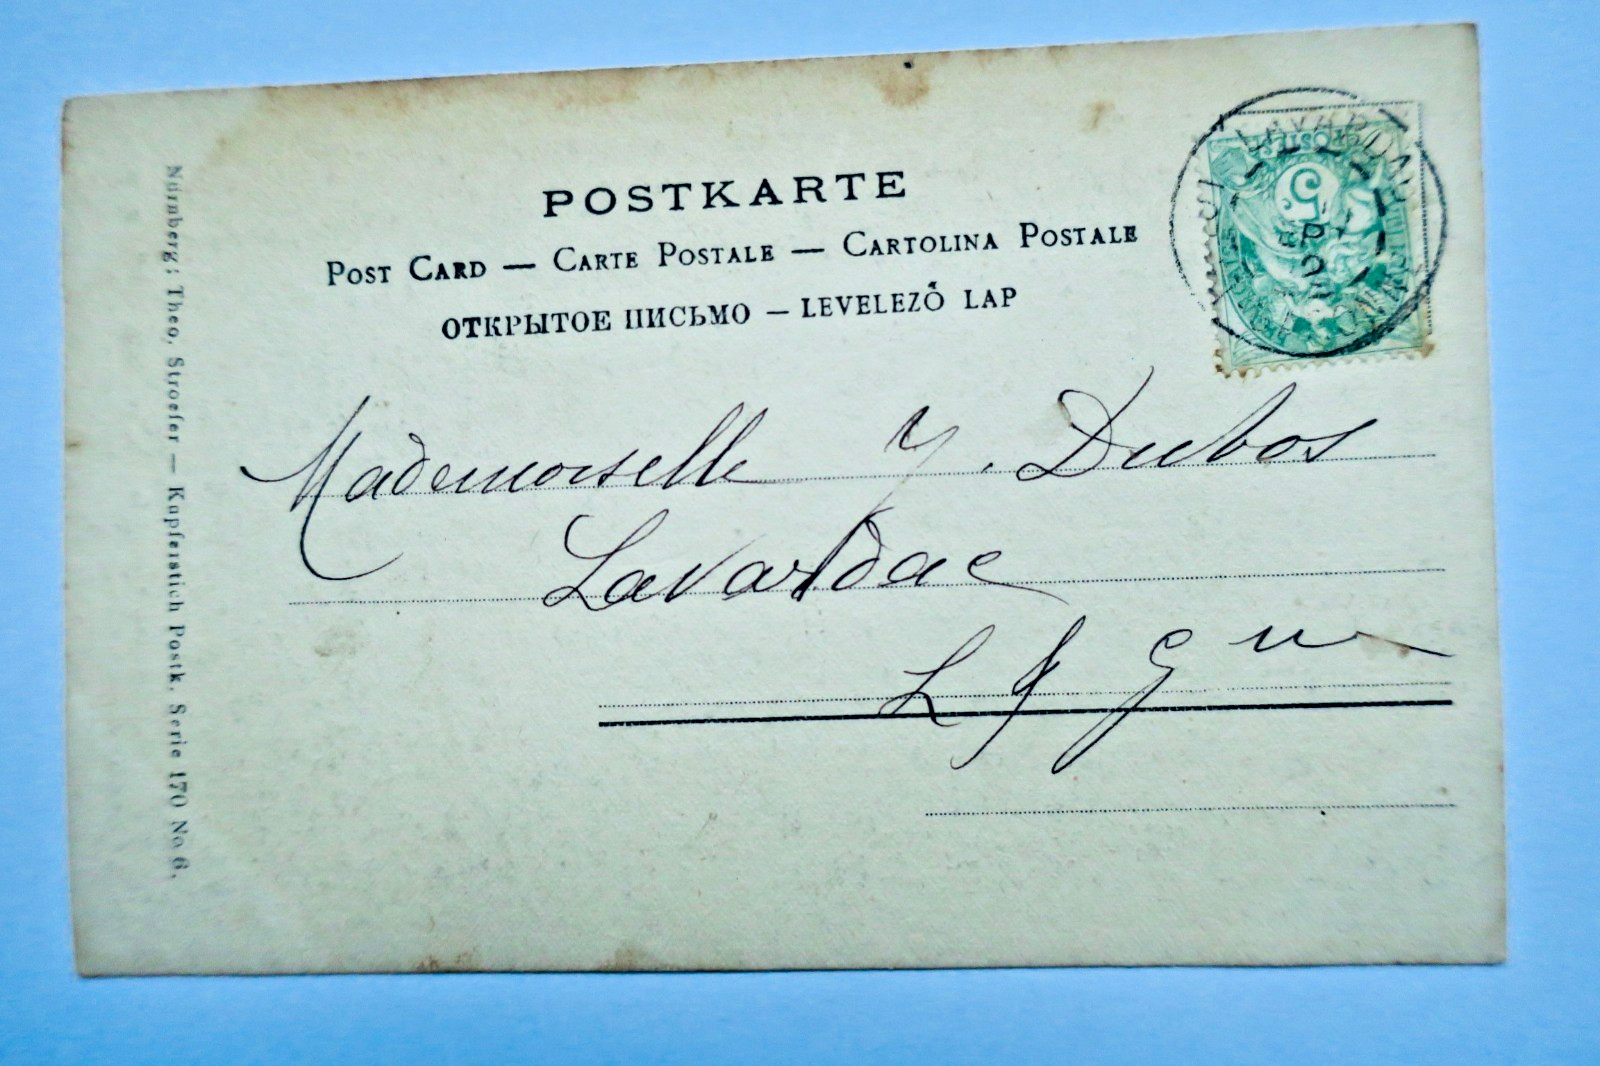 POSTKARTE
POST CARD — CARTE POSTALE — CARTOLINA POSTALE
ОТКРЫТОЕ ПИСЬМО — LEVELEZŐ LAP
Mademoiselle Y. Dubos
Lavardac
L & G ne
Nürnberg: Theo, Stroefer — Kupferstich Postk. Serie 170 No 6.
5
POSTES
LAVARDAC